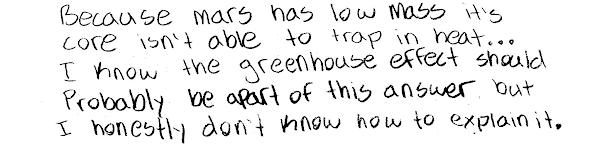 Because mars has low mass it's
core isn't able to trap in heat...
I know the greenhouse effect should
Probably be apart of this answer but
I honestly don't know how to explain it.